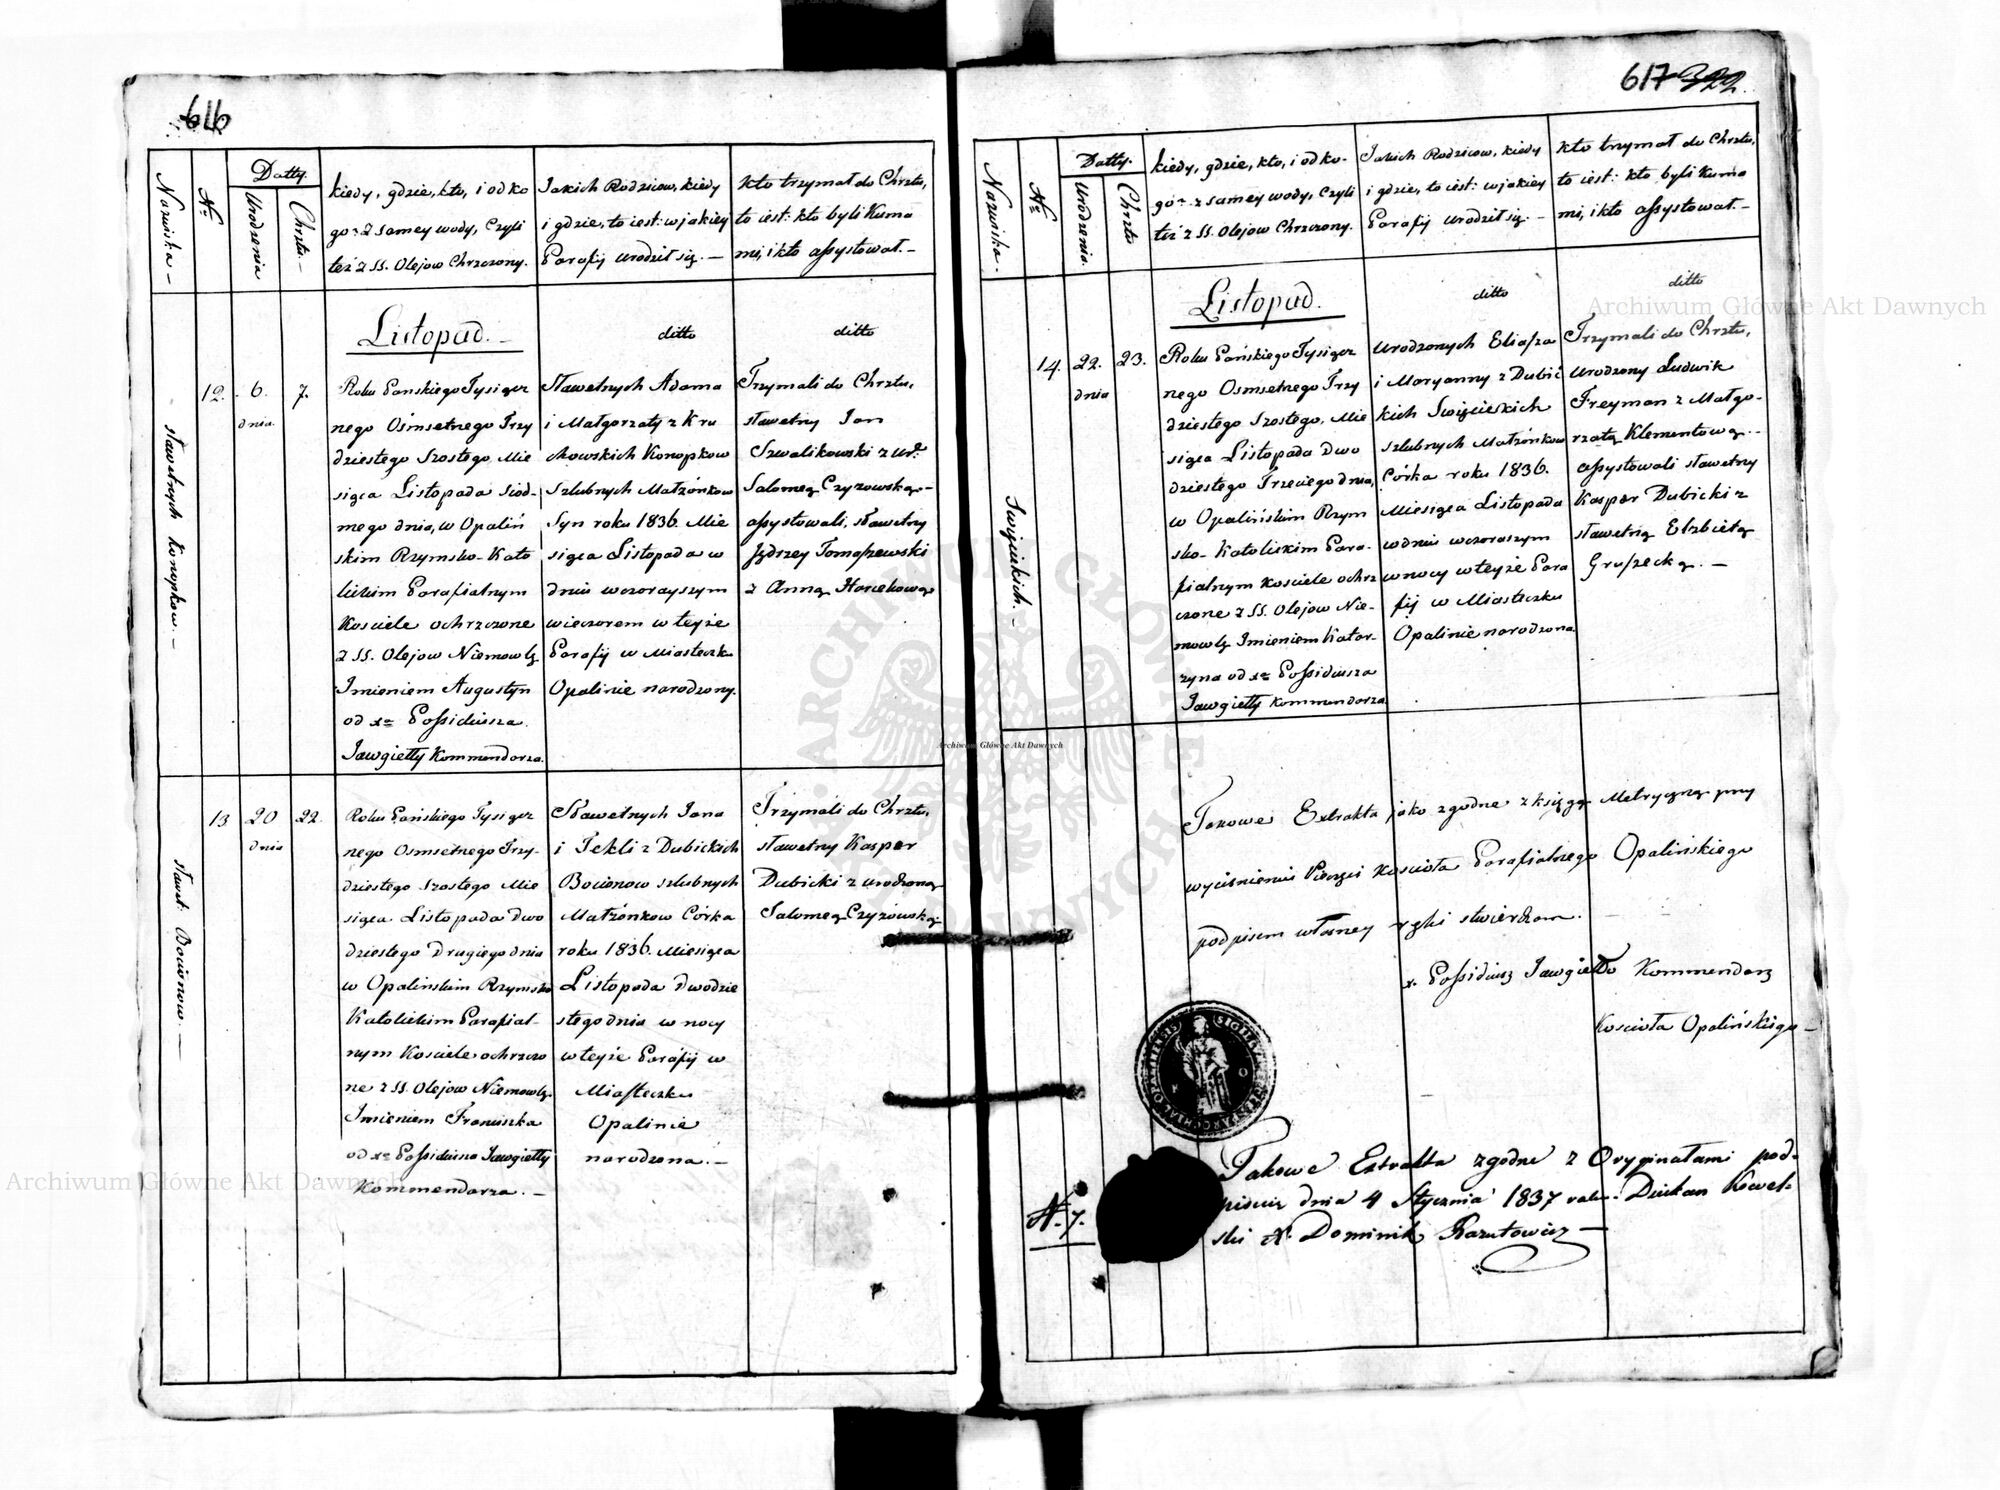 616
Nazwiska –
No
Datty.
Urodzenia
Chrztu. –
kiedy, gdzie, kto, i od ko
go z samey wody, Czyli
też z SS. Olejow Chrzczony.
Jakich Rodzicow, kiedy
i gdzie, to iest: w jakiey
Parafij urodził się. –
Kto trzymał do Chrztu,
to iest: kto byli Kuma
mi, i kto assystował. –
Listopad. –
ditto
ditto
sławetnych Konopkow. –
12.
6.
dnia.
7.
Roku Pańskiego Tysiącz
nego Ośmsetnego Trzy
dziestego Szostego Mie
siąca Listopada siód-
mego dnia, w Opaliń
skim Rzymsko-Kato
lickim Parafialnym
Kosciele ochrzczone
z SS. Olejow Niemowlę
Imieniem Augustyn
od xa Possidiusza
Jawgiełły Kommendarza.
Sławetnych Adama
i Małgorzaty z Kru
kowskich Konopkow
Szlubnych Małżonkow
Syn roku 1836. Mie
siąca Listopada w
dniu wczorayszym
wieczorem w teyże
Parafij w Miasteczku
Opalinie narodzony.
Trzymali do Chrztu,
sławetny Jan
Szwalikowski z Ur:
Salomeą Czyzowską –
assystowali, sławetny
Jędrzey Tomaszewski
z Anną
Sławet: Bocianow. –
13
20
dnia
22.
Roku Pańskiego Tysiącz
nego Osmsetnego Trzy-
dziestego Szostego Mie
siąca Listopada Dwo
dziestego Drugiego dnia
w Opalinskim Rzymsko
Katolickim Parafial-
nym Kosciele ochrzczo
ne z SS. Olejow Niemowlę
Imieniem Franciszka
od xa Possidiusza Jawgiełły
Kommendarza. –
Sławetnych Jana
i Tekli z Dubickich
Bocianow szlubnych
Małżonkow Córka
roku 1836. Miesiąca
Listopada Dwodzie
stego dnia w nocy
w teyże Parafij w
Miasteczku
Opalinie
narodzona. –
Trzymali do Chrztu,
sławetny Kasper
Dubicki z urodzoną
Salomeą Czyżowską.
617 322.
Nazwiska.
No
Datty.
Urodzenia.
Chrztu
kiedy, gdzie, kto, i od ko-
go z samey wody, Czyli
też z SS. Olejow Chrzczony.
Jakich Rodzicow, kiedy
i gdzie, to iest: w jakiey
Parafij Urodził się. –
Kto trzymał do Chrztu,
to iest: kto byli Kuma
mi, i kto assystował. –
Listopad.
ditto
ditto
Święcickich. –
14.
22.
dnia
23.
Roku Pańskiego Tysiącz
nego Osmsetnego Trzy
dziestego Szostego, Mie
siąca Listopada Dwo
dziestego Trzeciego dnia,
w Opalińskim Rzym
sko-Katolickim Para-
fialnym Kosciele ochrz
czone z SS. Olejow Nie-
mowlę Imieniem Katar-
zyna od xa Possidiusza
Jawgiełły Kommendarza
Urodzonych Eliasza
i Maryanny z Dubic
kich Święcickich
szlubnych Małżonkow
Córka roku 1836.
Miesiąca Listopada
w dniu wczoraszym
w nocy w teyże Para
fij w Miasteczku
Opalinie narodzona.
Trzymali do Chrztu,
Urodzony Ludwik
Freyman z Małgo-
rzatą Klementową. –
assystowali sławetny
Kasper Dubicki z
sławetną Elzbietą
Gruszecką. –
Takowe Extrakta jako zgodne z księgą Metryczną przy
wyciśnieniu Pieczęci Kosciola Parafialnego Opalińskiego
podpisem własney ręki stwierdzam.
x. Possidiusz Jawgiełło Kommendarz
Kosciola Opalińskiego –
K O
N. 7.
Takowe Extrakta zgodne z Oryginałami pod-
pisuię dnia 4 Stycznia 1837 roku. Dziekan Kowel-
ski X. Dominik
Archiwum Główne Akt Dawnych
Archiwum Główne Akt Dawnych
Archiwum Główne Akt Dawnych
ARCHIWUM GŁÓWNE AKT DAWNYCH